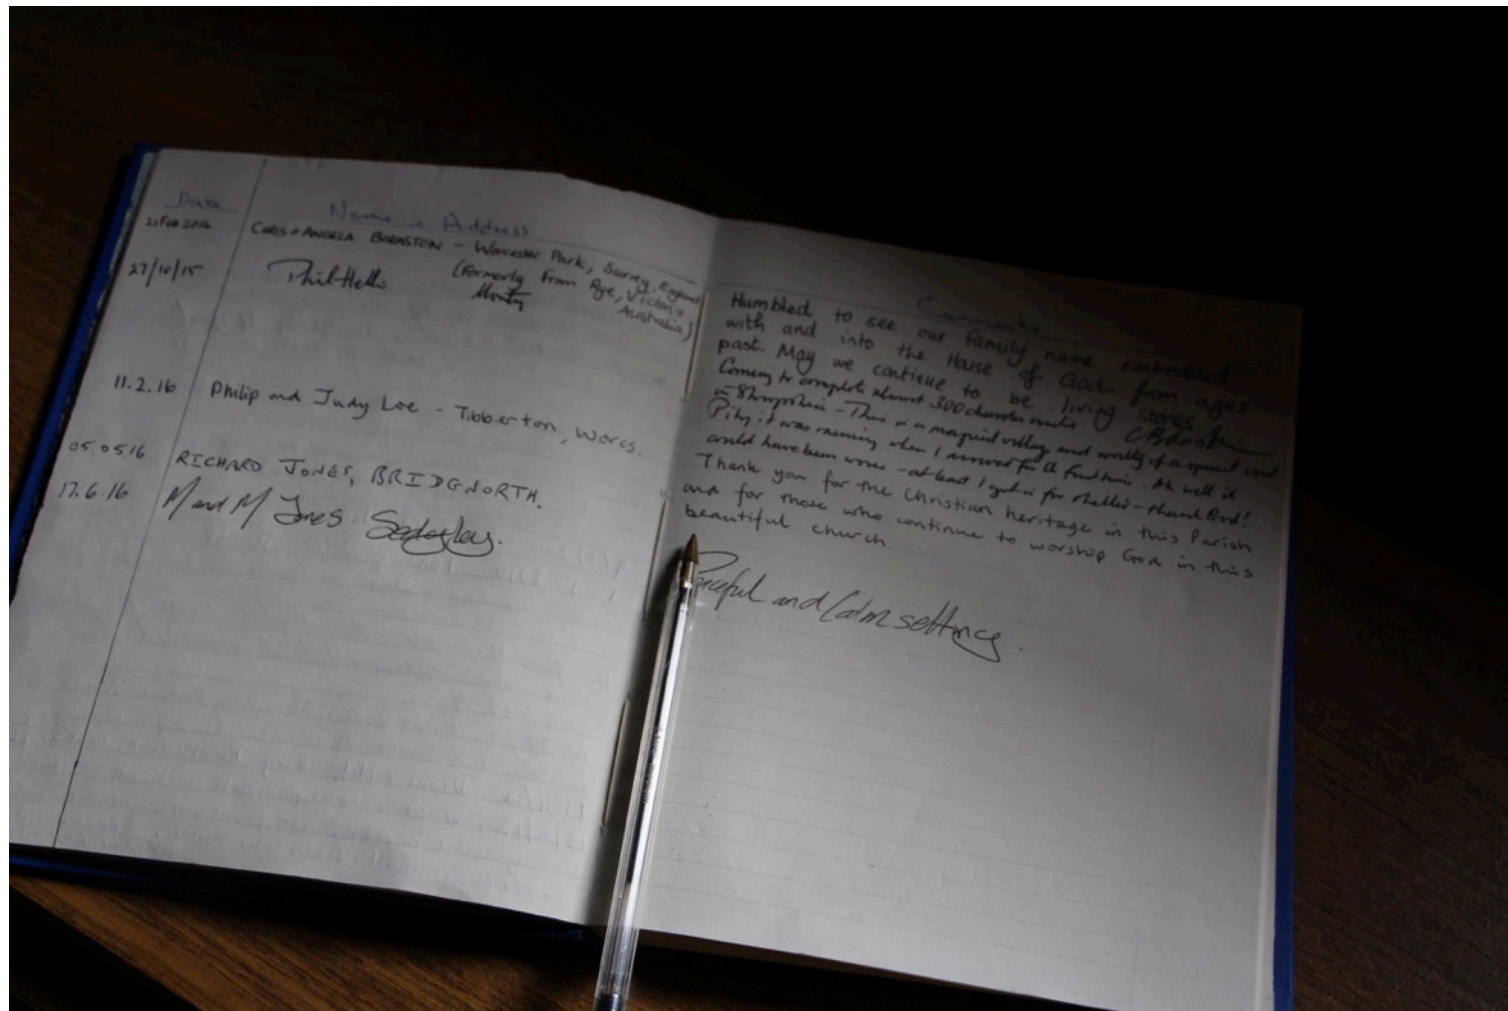 Date Name & Address
21 Feb 2016 CHRIS & ANGELA BORASTON - Worcester Park, Surrey, England
(Formerly from Rye, Victoria,
Australia)
27/10/15 Phil
11.2.16 Philip and Judy Loe - Tibberton, Worcs.
05.05.16 RICHARD JONES, BRIDGNORTH.
17.6.16 M and M Jones Sedgley.
Comments
Humbled to see our family name embedded
with and into the House of God from ages
past. May we continue to be living stones
Coming to complete almost 300 churches
in Shropshire - This is a and worthy of a special visit
Pity it was raining when I arrived for the . Ah well it
could have been worse - at least I got in for shelter - thank Lord!
Thank you for the Christian heritage in this Parish
and for those who continue to worship God in this
beautiful church.
Peaceful and Calm setting.